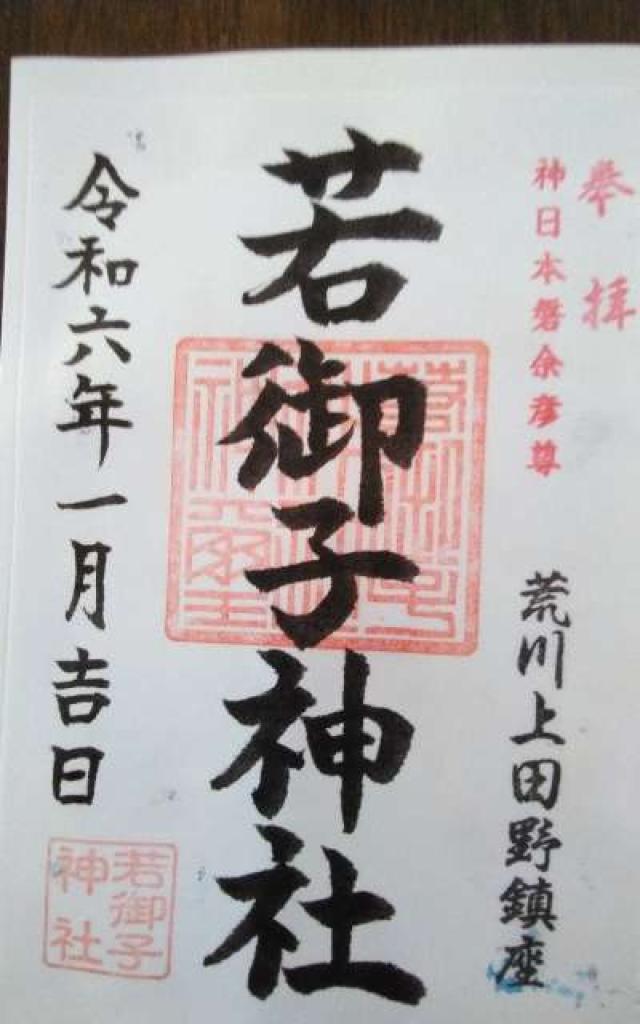 奉拝
神日本磐余彦尊
荒川上田野鎮座
若御子神社
令和六年一月吉日
若御子
神社